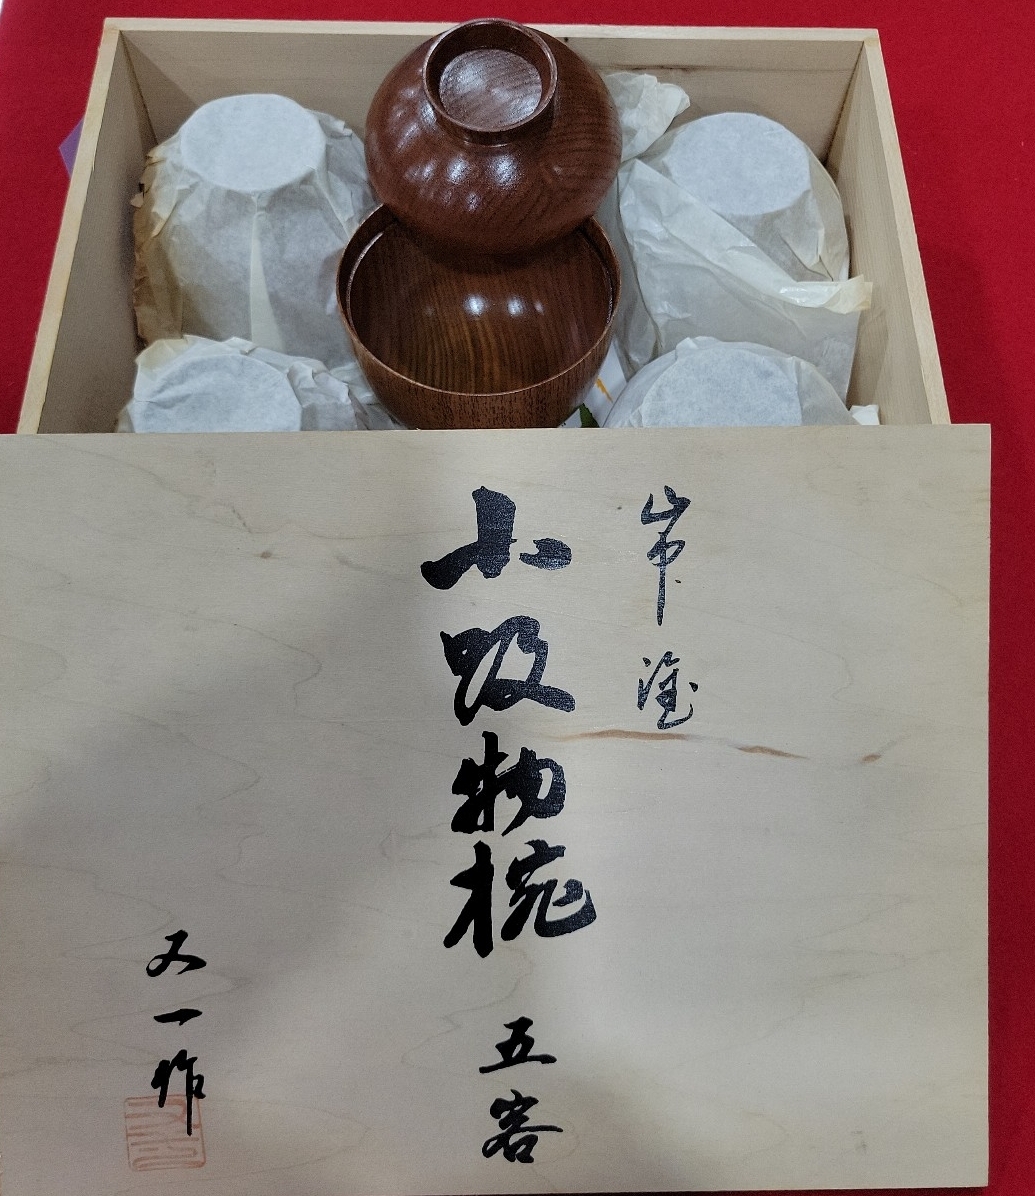 塗
小吸物椀 五客
又一作